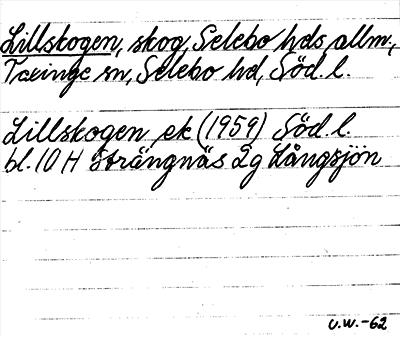 Lillskogen, skog, Selebo hds allm.,
Taxinge sn, Selebo hd, Söd. l.
Lillskogen ek (1959) Söd. l.
bl. 10 H Strängnäs 2g Långsjön
U.W.-62